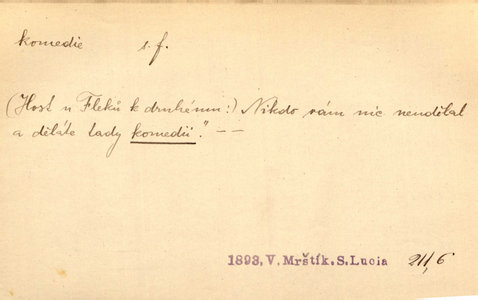 komedie s. f.
(Host u Fleků k druhému:) Nikdo vám nic neudělal
a děláte tady komedii". – –
1893, V. Mrštík. S. Lucia 211,6